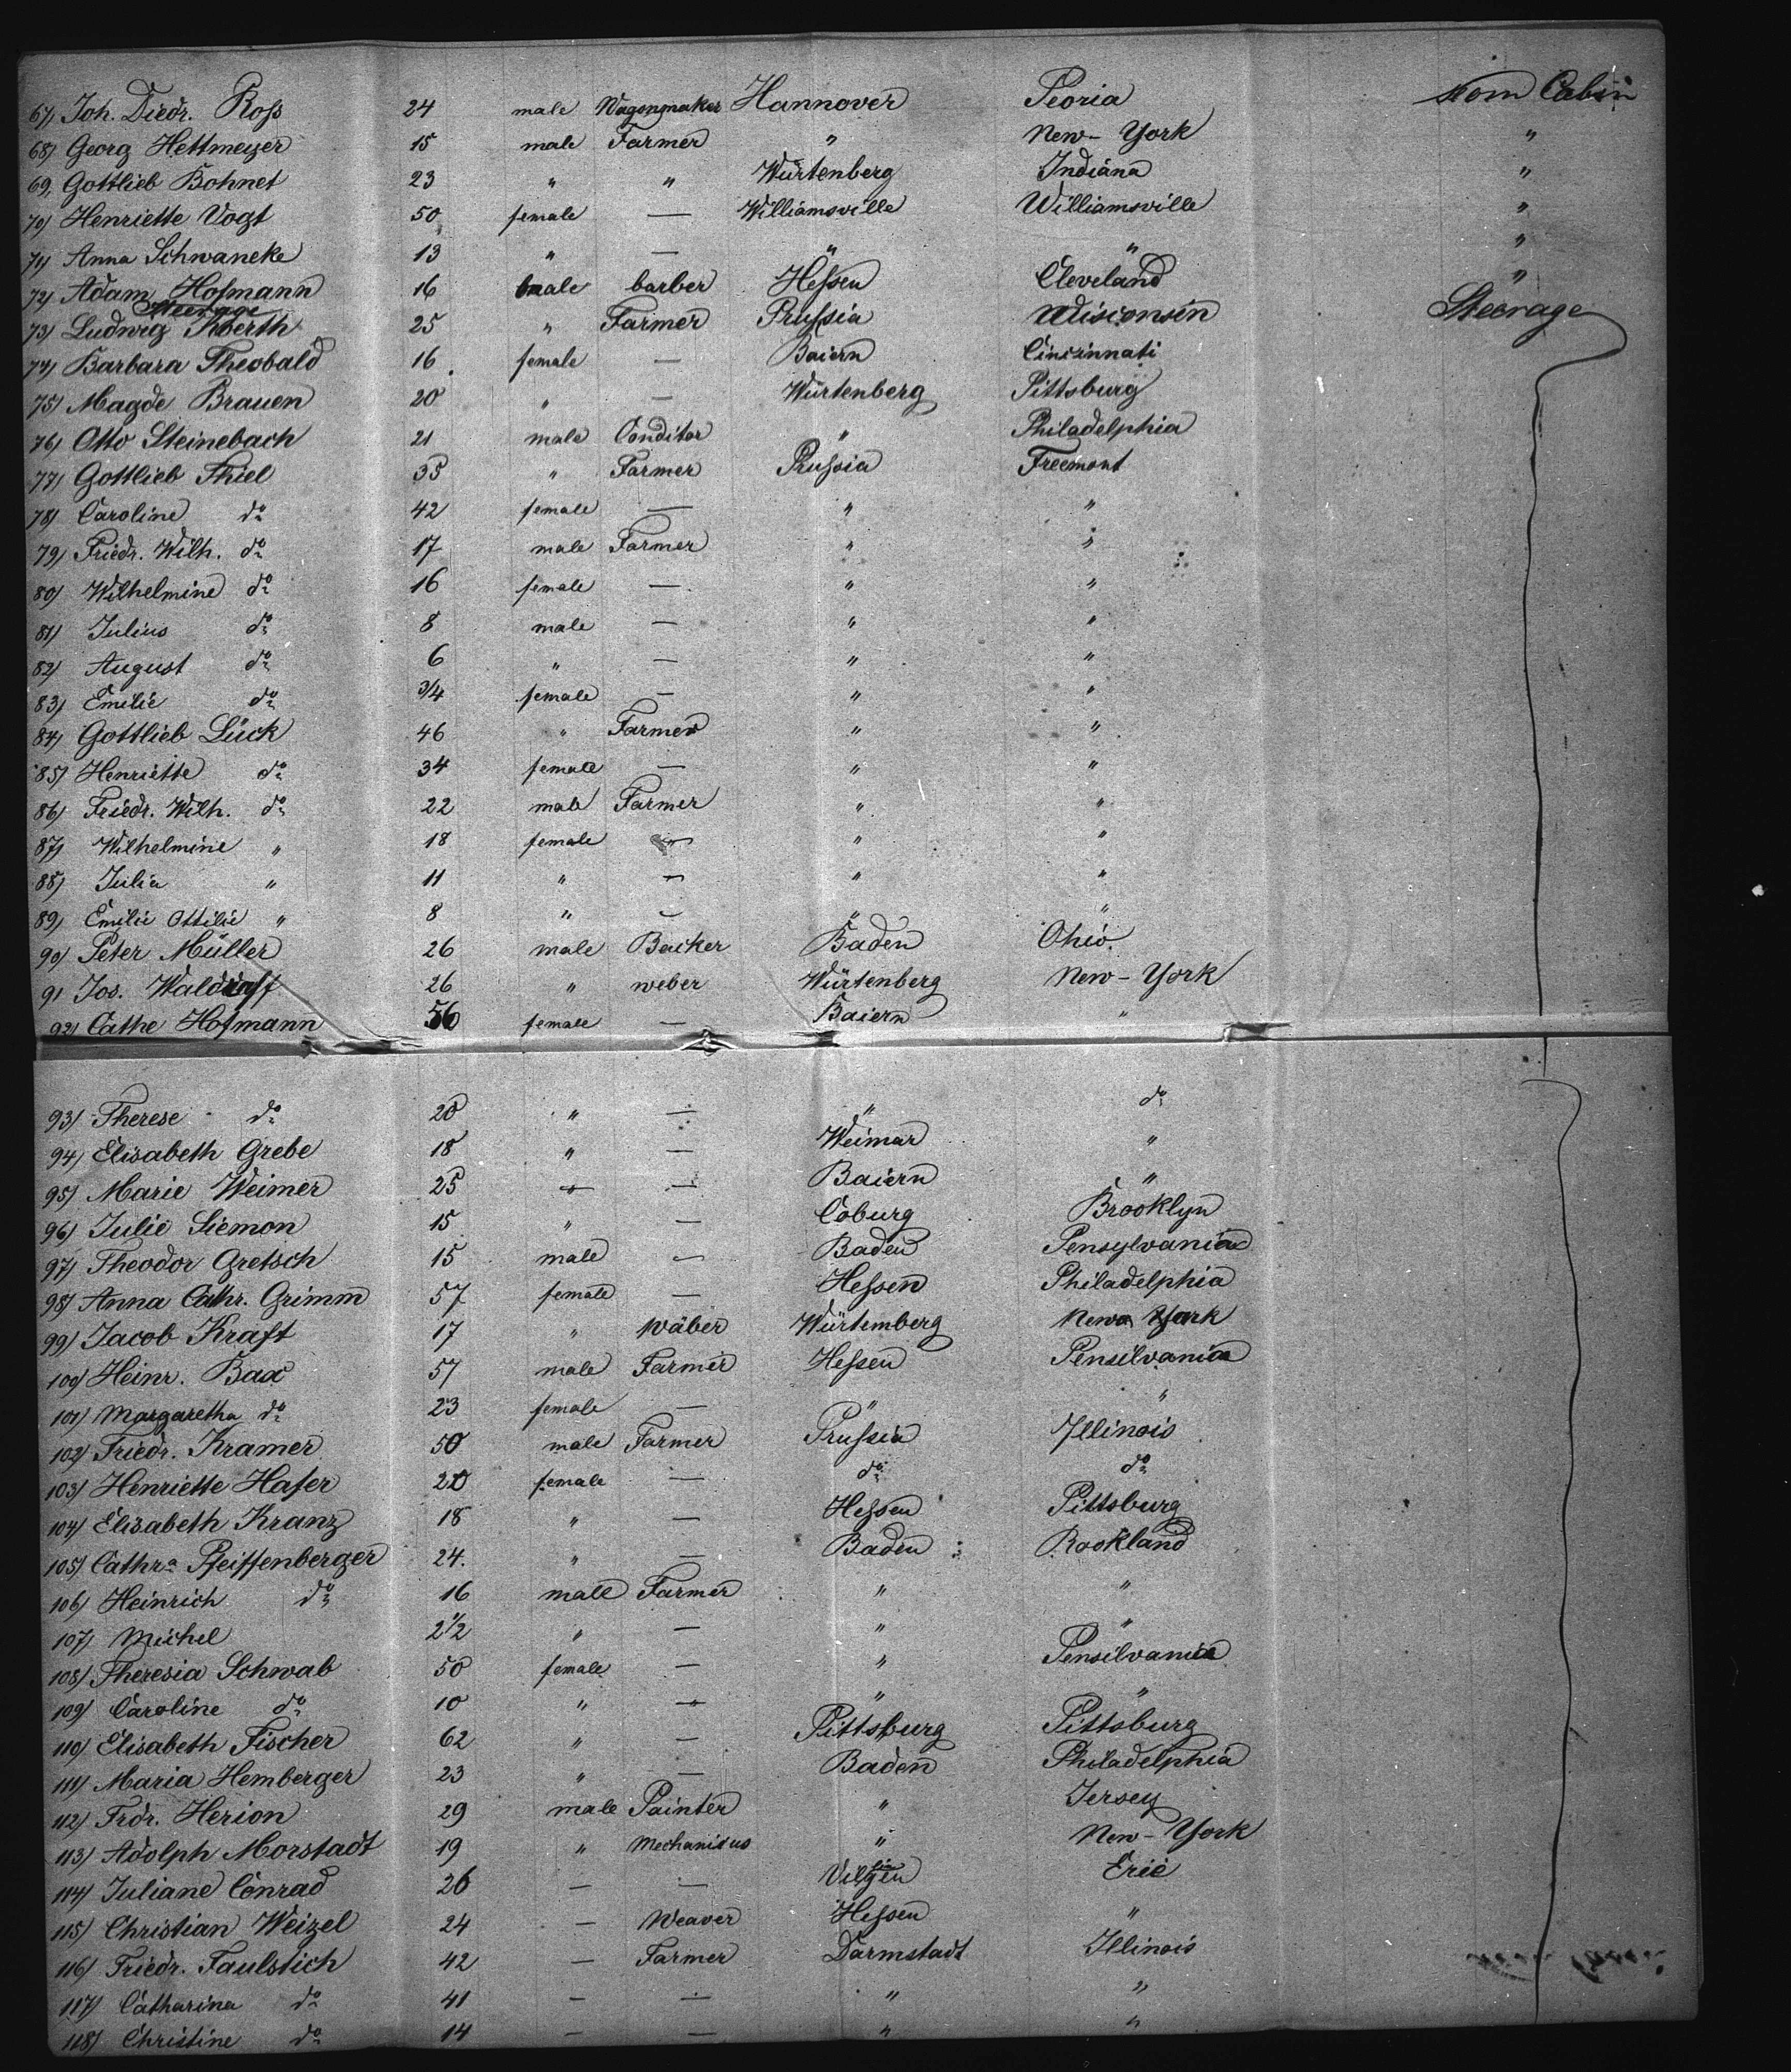 67) Joh. Diedr. Ross 24 male Wagonmaker Hannover Peoria from Cabin
68) Georg Hettmeyer 15 male Farmer " New-York "
69, Gottlieb Bohnet 23 " " Würtenberg Indiana "
70) Henriette Vogt 50 female — Williamsville Williamsville "
71) Anna Schwaneke 13 " — " " "
72) Adam Hofmann 16 male barber Hessen Cleveland "
Steerage
73) Ludwig Koerth 25 " Farmer Prussia Wisconsin Steerage
74) Barbara Theobald 16 female — Baiern Cincinnati
75) Magde Brauen 20 " — Würtenberg Pittsburg
76) Otto Steinebach 21 male Conditor " Philadelphia
77) Gottlieb Thiel 35 " Farmer Prussia Freemont
78) Caroline do 42 female — " "
79) Friedr. Wilh. do 17 male Farmer " "
80) Wilhelmine do 16 female — " "
81) Julius do 8 male — " "
82) August do 6 " — " "
83) Emilie do 3/4 female — " "
84) Gottlieb Lück 46 " Farmer " "
85) Henriette do 34 female — " "
86) Friedr. Wilh. do 22 male Farmer " "
87) Wilhelmine " 18 female — " "
88) Julia " 11 " — " "
89) Emilie Ottilie " 8 " — " "
90) Peter Müller 26 male Backer Baden Ohio.
91 Jos. 26 " weber Würtenberg New-York
92) Cathe Hofmann 56 female — Baiern "
93) Therese do 20 " — " do
94) Elisabeth Grebe 18 " — Weimar "
95) Marie Weimer 25 " — Baiern "
96) Julie Siemon 15 " — Coburg Brooklyn
97) Theodor Gretsch 15 male — Baden Pensylvania
98) Anna Cathr. Grimm 57 female — Hessen Philadelphia
99) Jacob Kraft 17 " Wäber Würtemberg New York
100) Heinr. Bax 57 male Farmer Hessen Pensilvania
101) Margaretha do 23 female — " "
102) Friedr. Kramer 50 male Farmer Prussia Illinois
103) Henriette Hafer 20 female — do do
104) Elisabeth Kranz 18 " — Hessen Pittsburg
105) Cathra Pfeiffenberger 24. " — Baden Rookland
106) Heinrich do 16 male Farmer " "
107) Michel 2 1/2 " — " "
108) Theresia Schwab 50 female — " Pensilvania
109) Caroline do 10 " — " "
110) Elisabeth Fischer 62 " — Pittsburg Pittsburg
111) Maria Hemberger 23 " — Baden Philadelphia
112) Frdr. Herion 29 male Painter " Jersey
113) Adolph Morstadt 19 " Mechanicus " New-York
114) Juliane Conrad 26 — — Erie
115) Christian Weizel 24 — Weaver Hessen "
116) Friedr. Faulstich 42 — Farmer Darmstadt Illinois
117) Catharina do 41 — — " "
118) Christine do 14 — — " "